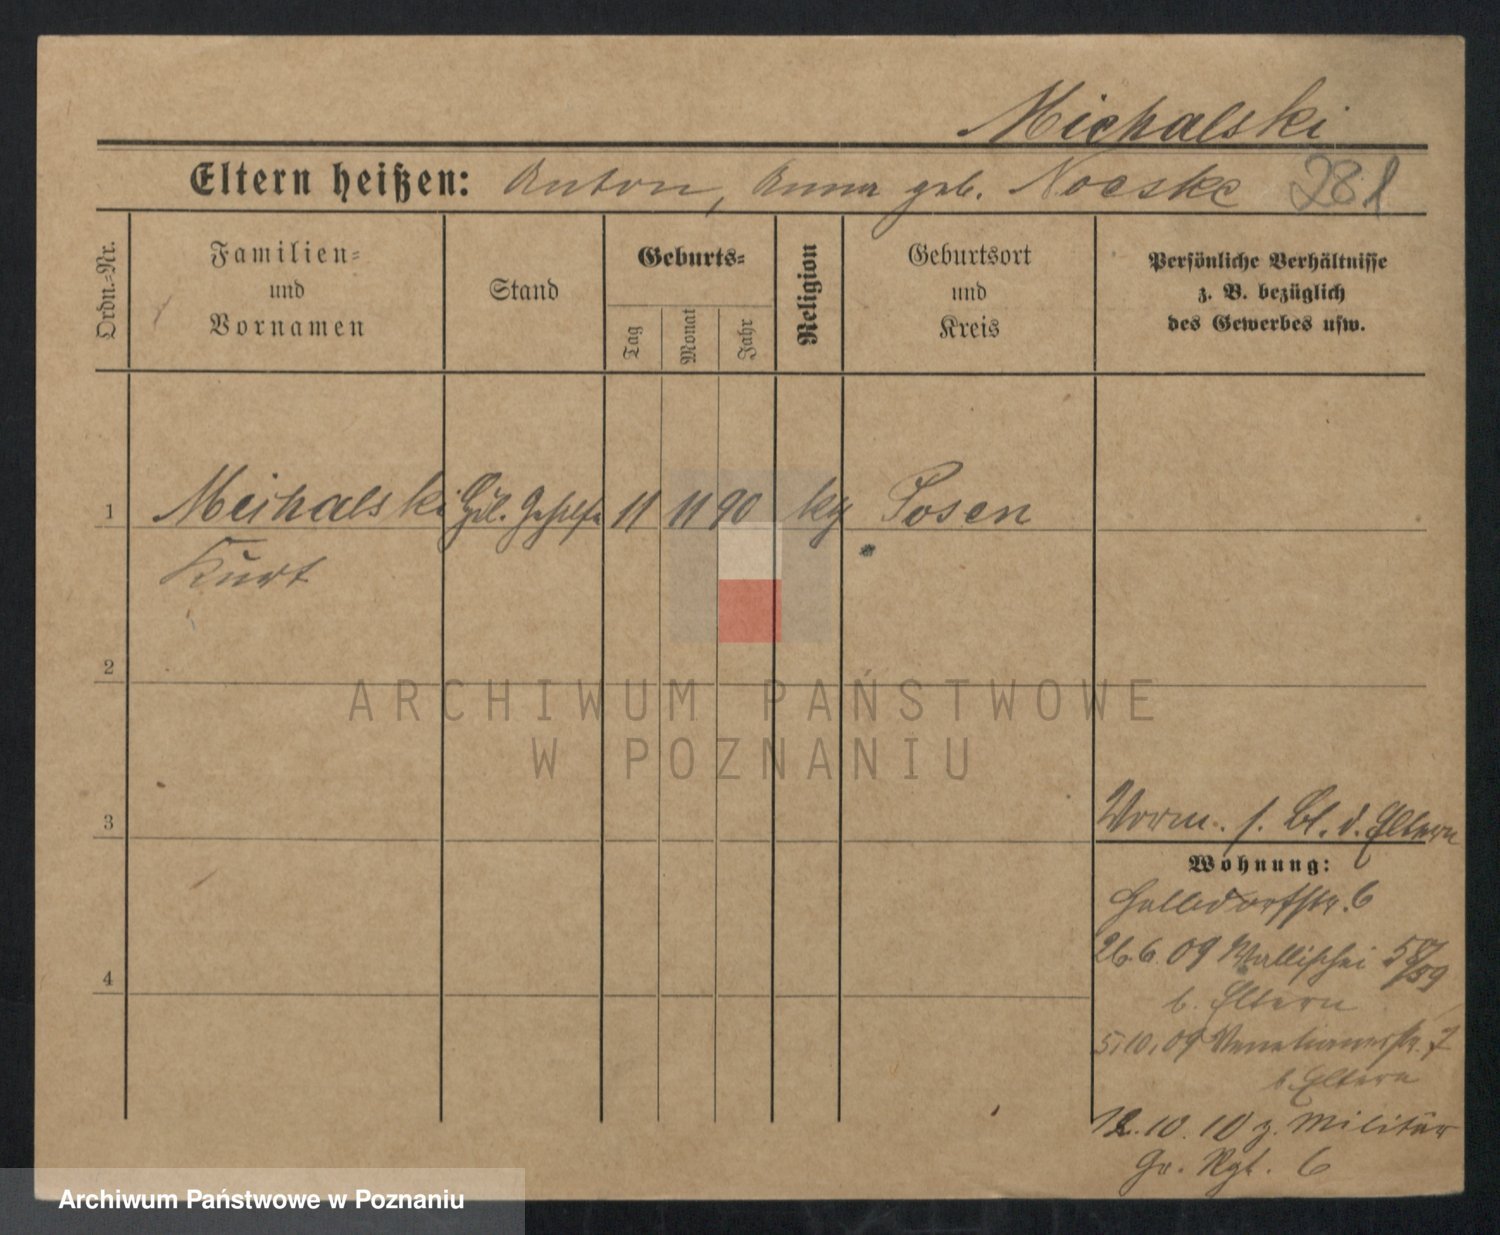 Michalski
Eltern heißen: Anton, Anna geb. Noeske 281
Ordn.-Nr.
Familien-
und
Vornamen
Stand
Geburts-
Tag
Monat
Jahr
Religion
Geburtsort
und
Kreis
Persönliche Verhältnisse
z. B. bezüglich
des Gewerbes usw.
1 Michalski Hdl. Gehilfe 11 11 90 kg Posen
Kurt
2
ARCHIWUM PAŃSTWOWE
W POZNANIU
3
Vorm. s. Bl. d. Eltern
Wohnung:
Halbdorfstr. 6
26.6.09 Wallischei 58/59
b. Eltern
4
5.10.09 Venetianerstr. 7
b. Eltern
12.10.10 z. Militär
Gr. Rgt. 6
Archiwum Państwowe w Poznaniu